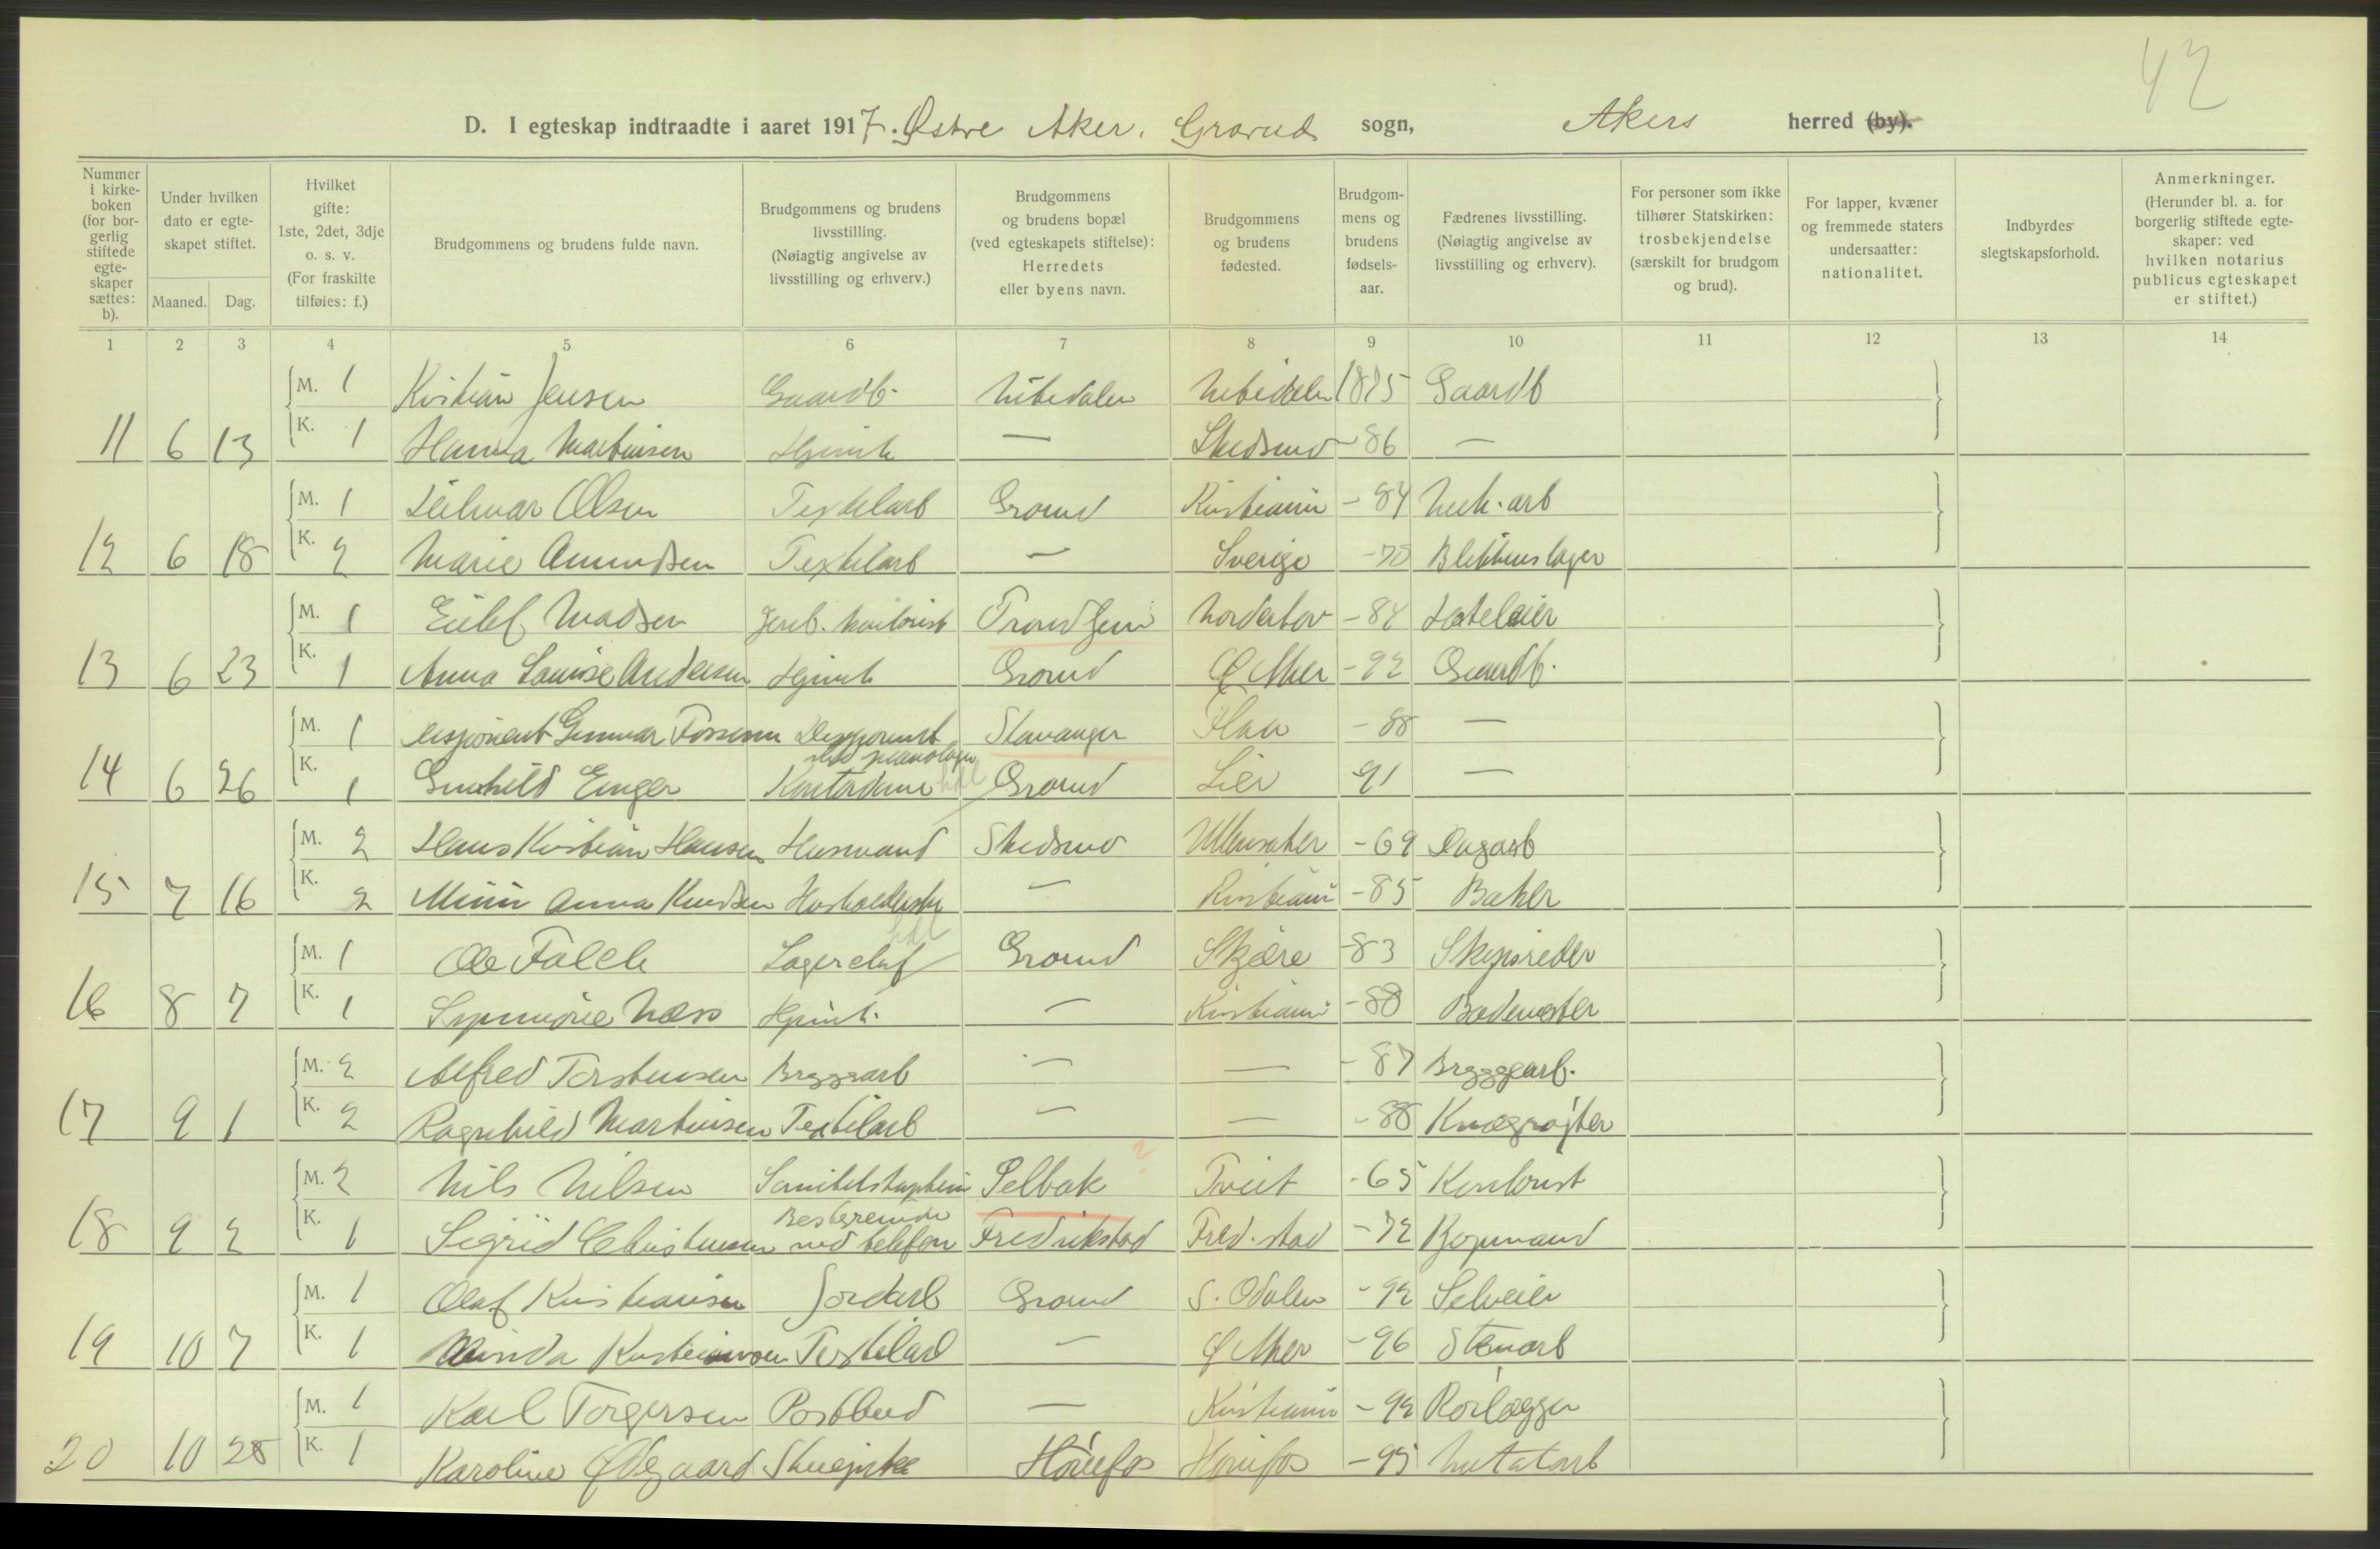 42
D. I egteskap indtraadte i aaret 1917. Østre Aker. Grorud sogn, Akers herred (by).
Nummer i kirkeboken (for borgerlig stiftede egteskaper sættes: b).
Under hvilken dato er egteskapet stiftet.
Maaned. Dag.
Hvilket gifte: 1ste, 2det, 3dje o. s. v. (For fraskilte tilføies: f.)
Brudgommens og brudens fulde navn.
Brudgommens og brudens livsstilling. (Nøiagtig angivelse av livsstilling og erhverv.)
Brudgommens og brudens bopæl (ved egteskapets stiftelse): Herredets eller byens navn.
Brudgommens og brudens fødested.
Brudgommens og brudens fødselsaar.
Fædrenes livsstilling. (Nøiagtig angivelse av livsstilling og erhverv).
For personer som ikke tilhører Statskirken: trosbekjendelse (særskilt for brudgom og brud).
For lapper, kvæner og fremmede staters undersaatter: nationalitet.
Indbyrdes slegtskapsforhold.
Anmerkninger. (Herunder bl. a. for borgerlig stiftede egteskaper: ved hvilken notarius publicus egteskapet er stiftet.)
1 2 3 4 5 6 7 8 9 10 11 12 13 14
M. 1 Kristian Jensen Gaardb. Nitedalen Nitedalen 1875 Gaardb
11 6 13 K. 1 Hanna Martinsen Hjemh — Skedsmo -86 —
M. 1 Hilmar Olsen Textilarb Grorud Kristiania -84 Mek. arb
12 6 18 K. 2 Marie Amundsen Textilarb — Sverige Blikkenslager
M. 1 Eilef Madsen Trondhjem Norderhov -84 Hoteleier
13 6 23 K. 1 Anna Louise Andersen Hjemh Grorud Ø Aker -92 Gaardb.
M. 1 Gunnar Disponent Stavanger Flaa -88 —
ved pianolager
14 6 26 K. 1 Gunhild Enger Kontordame Grorud Lier 91 —
M. 2 Hans Kristian Hansen Husmand Skedsmo Ullensaker -69 Dagarb
15 7 16 K. 2 Anna Knudsen Husholderske — Kristiania -85 Baker
M. 1 Ole Falch Lagerchef Grorud -83 Skipsreder
16 8 7 K. 1 Synnøve Næss Hjemh. — Kristiania -88 Bademester
M. 2 Alfred Torstensen Bryggearb — — -87 Bryggearb.
17 9 1 K. 2 Ragnhild Martinsen Textilarb — — -88
M. 2 Nils Nilsen Sanitetskaptein Selbak ? Tveit -65 Kontorist
Bestyrerinde
18 9 2 K. 1 Sigrid Christensen ved telefon Fredrikstad Fred.stad -72 Kjøpmand
M. 1 Olaf Kristiansen Jordarb Grorud S. Odalen -92 Selveier
19 10 7 K. 1 Kristiansen Textilarb — Ø Aker -96 Stenarb
M. 1 Karl Torgersen Postbud — Kristiania -92 Rørlægger
20 10 28 K. 1 Karoline Ødegaard Hønefos Hønefos -95